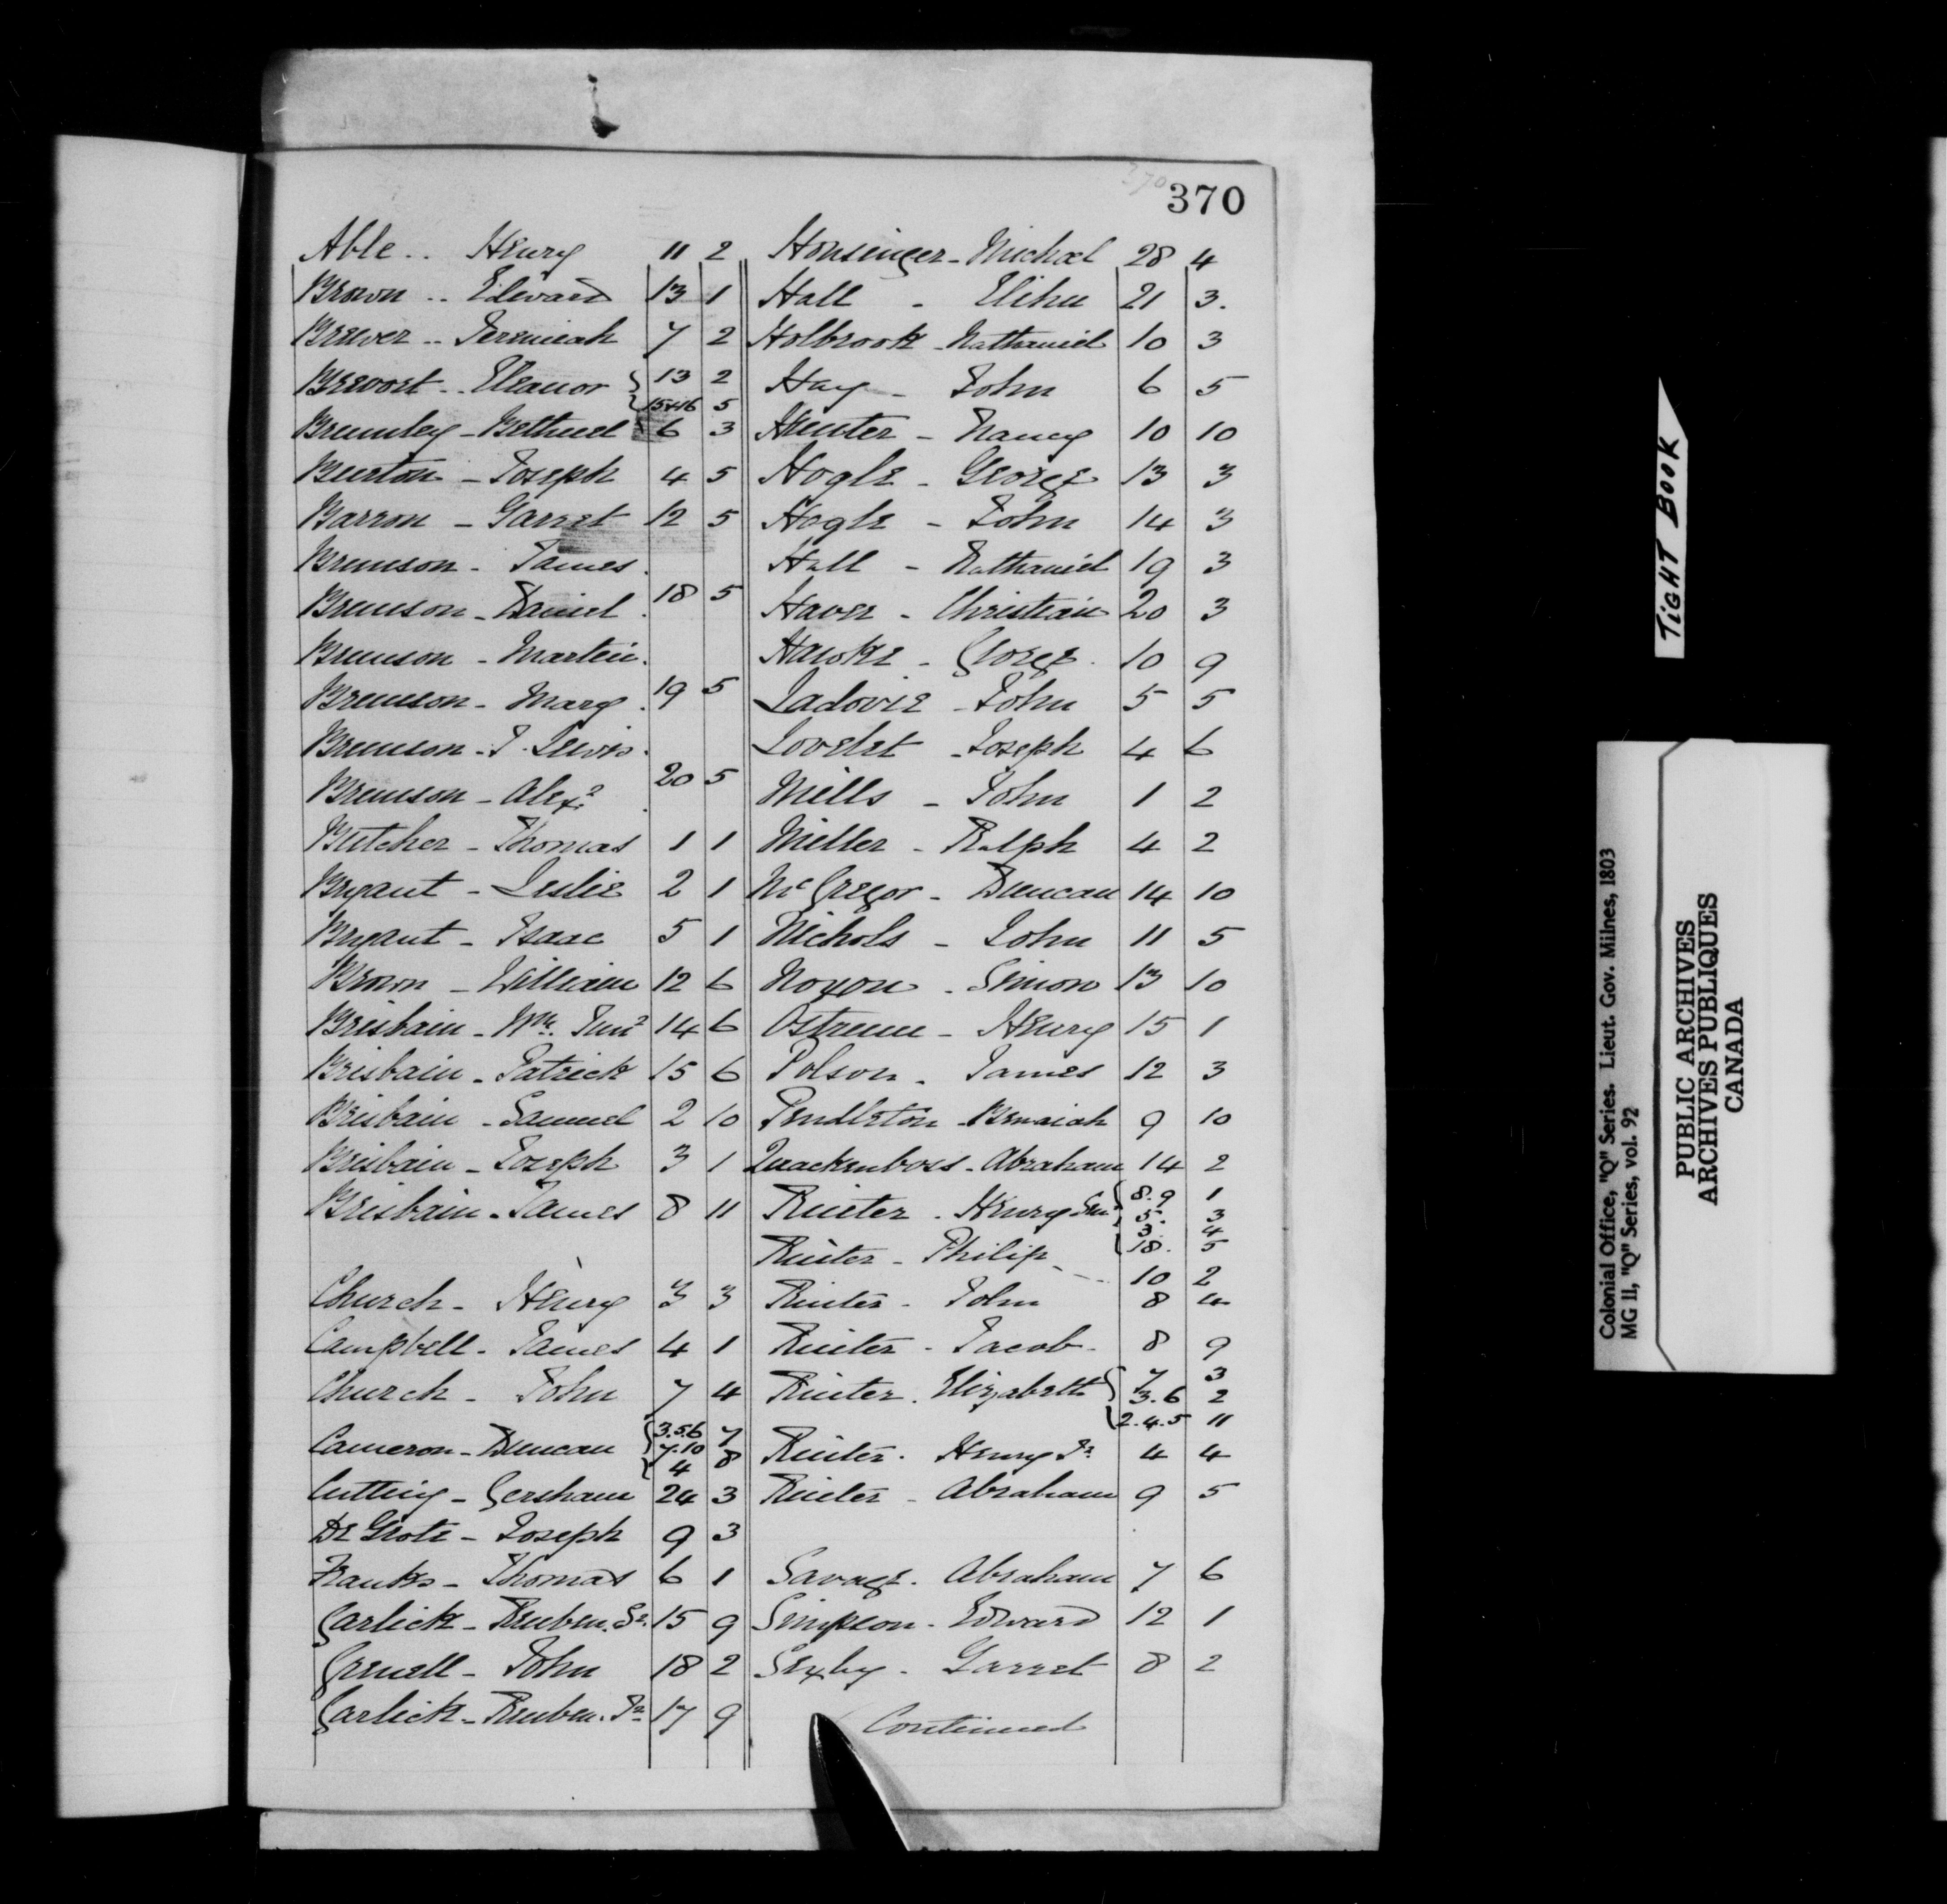 370
Able .. Henry 11 2
Brown .. Edward 13 1
Brewer .. Jeremiah 7 2
Brevort .. Eleanor { 13 2
15+16 5
Brumley - Bethuel 6 3
Burton - Joseph 4 5
Barron - Garret 12 5
Brunson - James.
Brunson - Daniel. 18 5
Brunson - Martin.
Brunson - Mary. 19 5
Brunson - J. Lewis.
Brunson - Alexr. 20 5
Butcher - Thomas 1 1
Bryant - Leslie 2 1
Bryant - Isaac 5 1
Brown - William 12 6
Brisbain - Wm. Junr 14 6
Brisbain - Patrick 15 6
Brisbain - Samuel 2 10
Brisbain - Joseph 3 1
Brisbain - James 8 11
Church - Henry 3 3
Campbell - James 4 1
Church - John 7 4
Cameron - Duncan { 3.5.6 7
7.10 8
4
Cutting - Gersham 24 3
De Grote - Joseph 9 3
Franks - Thomas 6 1
Garlick - Reuben. Sr. 15 9
Grenell - John 18 2
Garlick - Reuben. Jr 17 9
Honsinger - Michael 28 4
Hall - Elihu 21 3.
Holbrook - Nathaniel 10 3
Hay - John 6 5
Hunter - Nancy 10 10
Hogle - George 13 3
Hogle - John 14 3
Hall - Nathaniel 19 3
Haver - Christian 20 3
Hawke - George. 10 9
Ladovie - John 5 5
Lovelet - Joseph 4 6
Mills - John 1 2
Miller - Ralph 4 2
McGregor - Duncan 14 10
Nichols - John 11 5
Noxon - Simon 13 10
Ostrum - Henry 15 1
Polson - James 12 3
Pendleton - Benaiah 9 10
Quackenboss - Abraham 14 2
Ruiter - Henry Senr { 8.9 1
5. 3
3. 4
18. 5
Ruiter - Philip - --- 10 2
Ruiter - John 8 4
Ruiter - Jacob - 8 9
Ruiter. Elizabeth { 7 3
3.6 2
2.4.5 11
Ruiter. Henry Jr. 4 4
Ruiter - Abraham 9 5
Savage. Abraham 7 6
Simpson - Edward 12 1
Sexby - Garret 8 2
Continued
TIGHT BOOK
Colonial Office, "Q" Series. Lieut. Gov. Milnes, 1803
MG 11, "Q" Series, vol. 92
PUBLIC ARCHIVES
ARCHIVES PUBLIQUES
CANADA